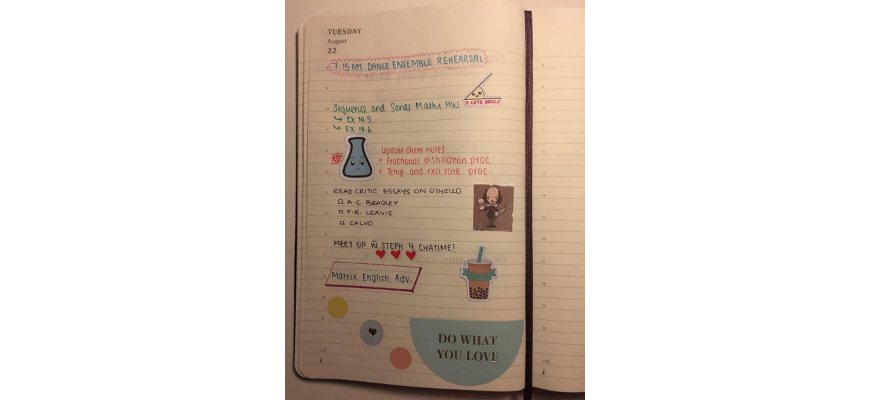 TUESDAY
August
22
7.15 AM DANCE ENSEMBLE REHEARSAL
Sequence and Series Maths HW
A CUTE ANGLE
↳ Ex 14.5
↳ Ex 14.6
Update Chem notes
+ Fractional distillation prac
+ Temp and rxn rate prac
READ CRITIC ESSAYS ON OTHELLO
A.C. BRADLEY
F.R. LEAVIS
CALVO
MEET UP W STEPH 4 CHATIME!
Matrix English Adv.
DO WHAT
YOU LOVE